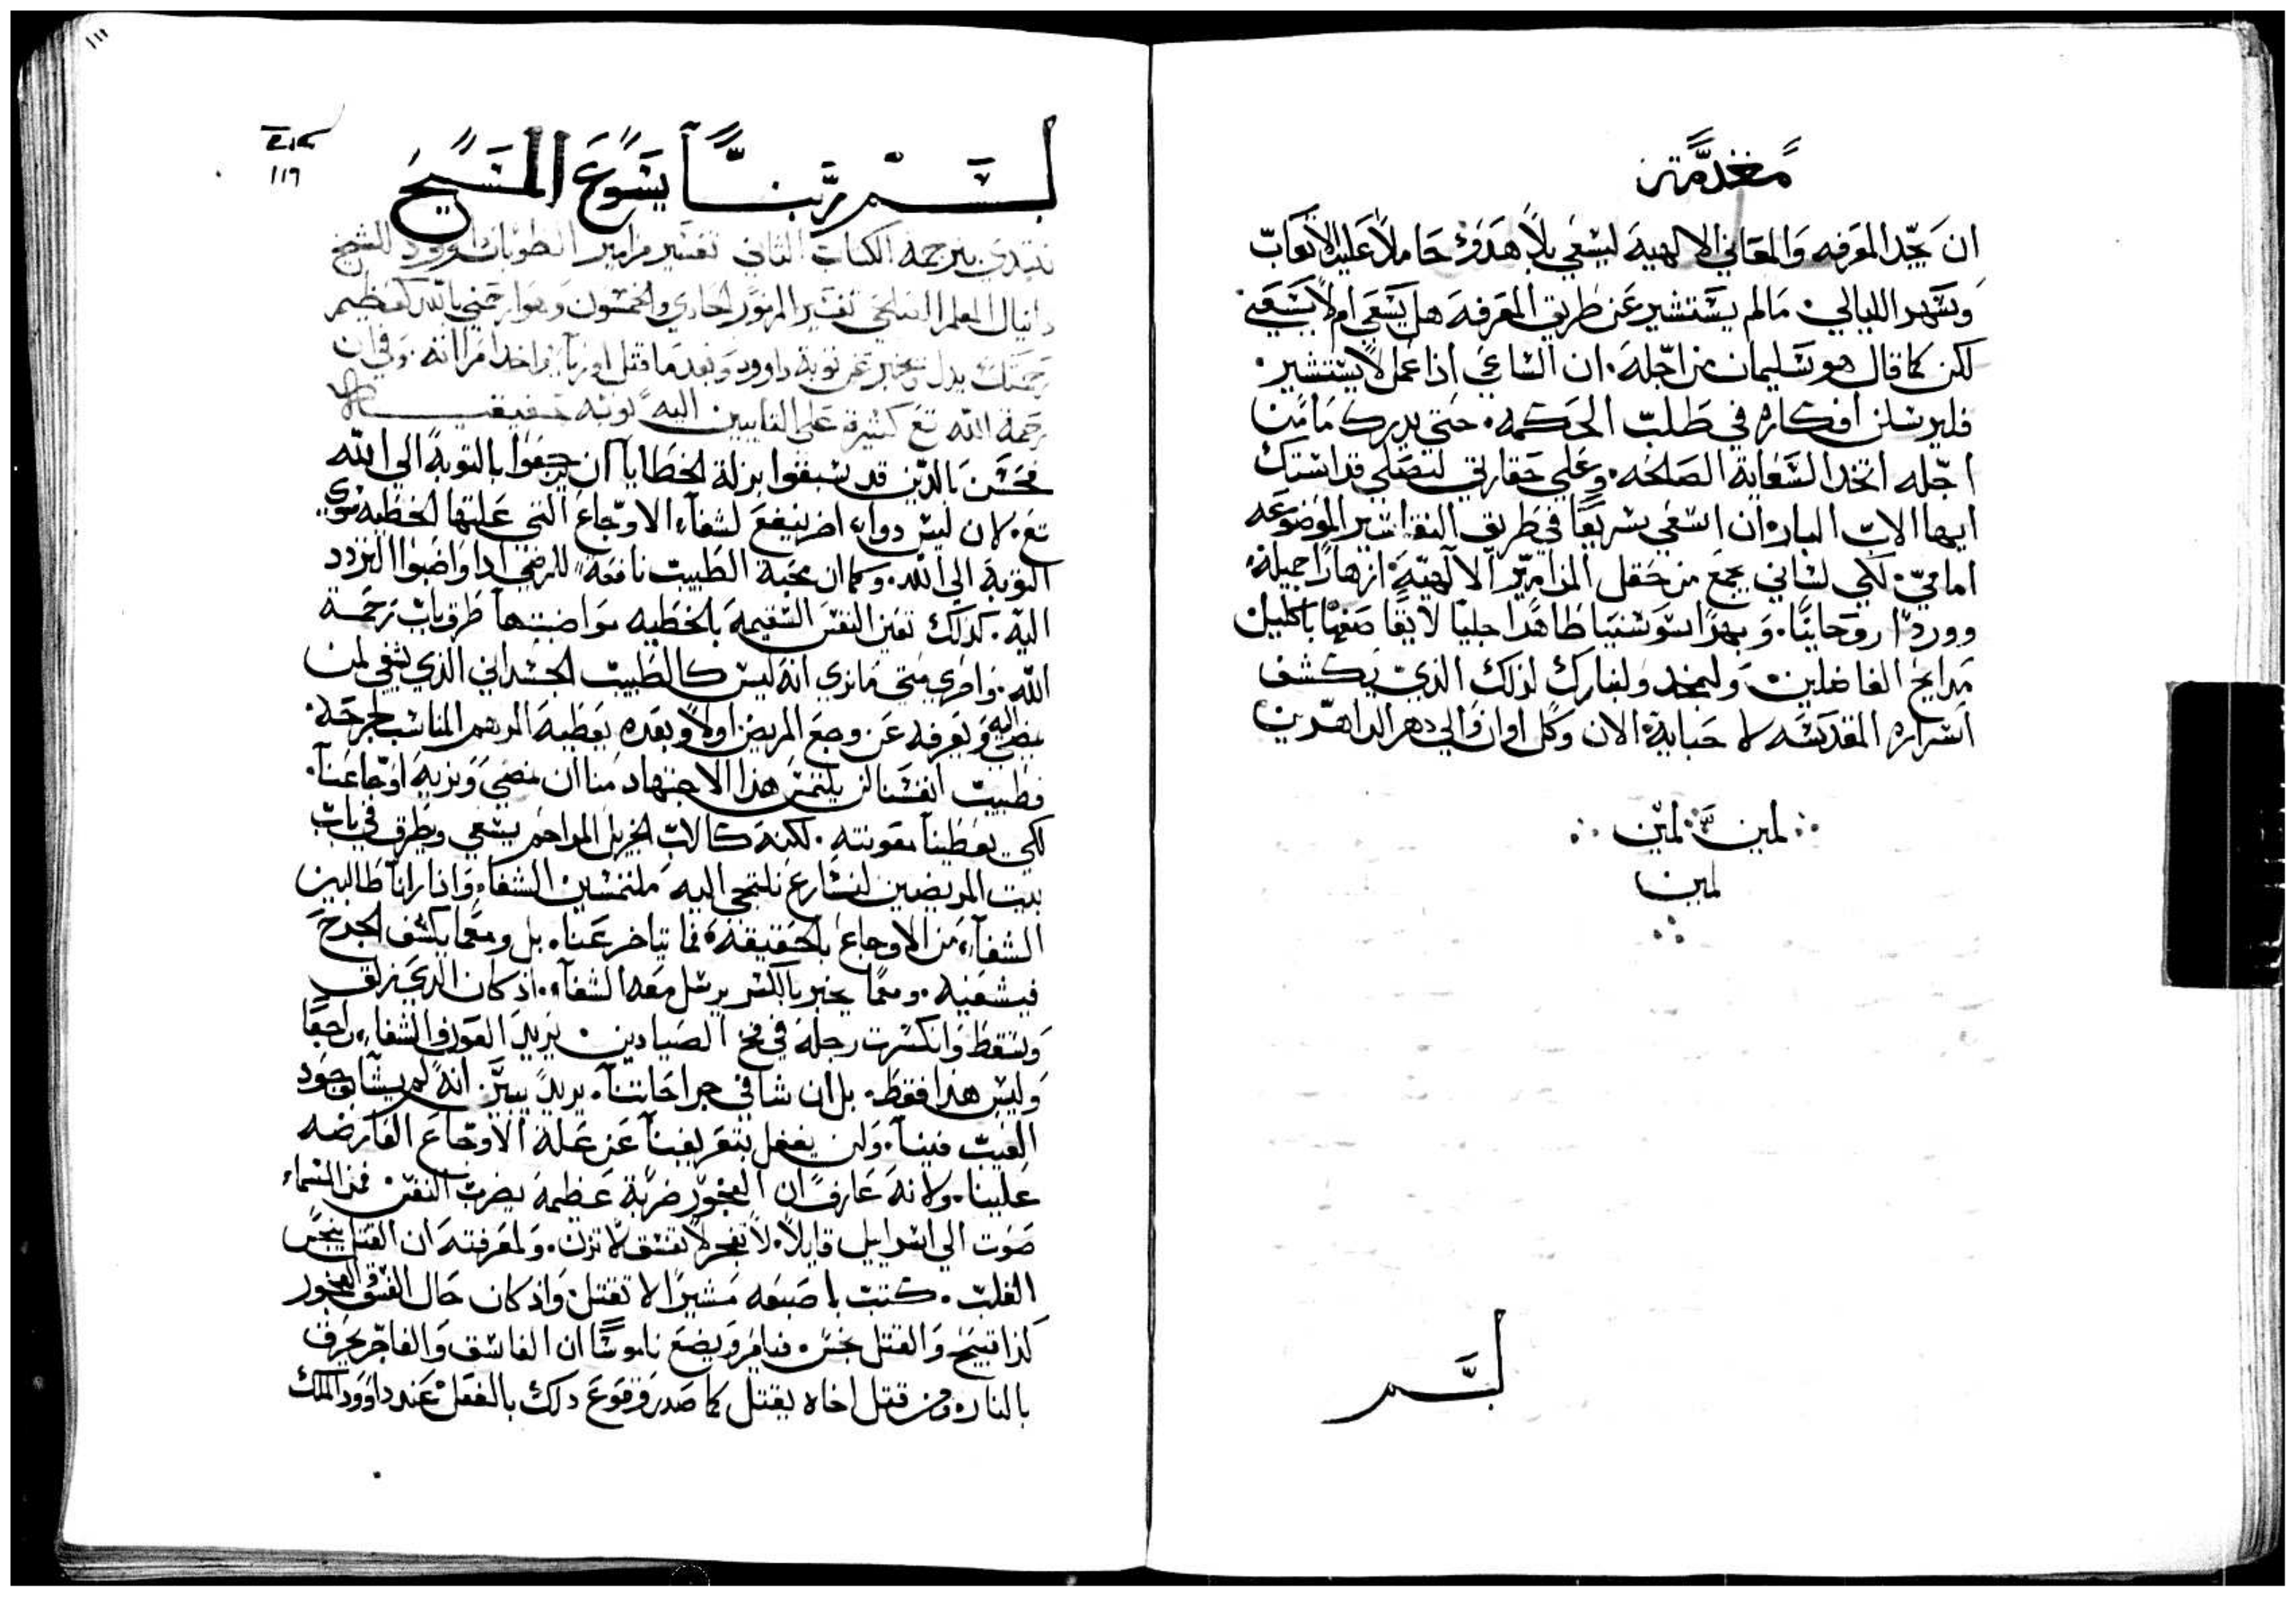 مقدمة
ان يجد المعرفه والمعاني الالهية ليسعى بلا هدوء حاملا عليه الاتعاب
ويسهر الليالي. مالم يستشير عن طريق المعرفة هل يسعى ام لا يسعى
لكن كما قال هو سليمان من اجله. ان الساعي اذا عمل لا يستشير.
فليرسلن افكاره في طلب الحكمه. حتى يدرك ما من
اجله اتخذ السعاية الصالحه. وعلى حقارتي لتصلي قداستك
ايها الاب البار. ان اسعى سريعا في طريق التفاسير الموضوعه
امامي. لكي لساني يجمع من حقل المزامير الالهية ازهارا جميلة.
ووردا روحانيا. وبهذا سوسنيا طاهرا جليا لايقا صفها باكليل
مدايح الفاضلين. وليمجد وليبارك لذلك الذي يكشف
اسراره المقدسه لا حبايه. الان وكل اوان والى دهر الداهرين
امين امين
امين
بسم
١١١
١١٩
بسم ربنا يسوع المسيح
نبتدي بترجمة الكتاب الثاني تفسير مزامير الطوبان داوود للشيخ
دانيال المعلم الصلحي تفسير المزمور الحادي والخمسون وهو ارحمني يالله كعظيم
رحمتك يدل ويخبر عن توبة داوود وبعد ما قتل اوريا واخذ امراته. وفي ان
رحمة الله تع كثيرة على التايبين اليه توبة حقيقيه
فحسن بالذين قد سبقوا بزلة الخطايا ان يرجعوا بالتوبة الى الله
تع. لان ليس دواء اخر ينفع لشفاء الاوجاع التي علتها الخطيه سوى
التوبة الى الله. وكما ان محبة الطبيب نافعة للمرضى اذا واضبوا التردد
اليه. كذلك تعين النفس السقيمة بالخطيه مواضبتها طرق باب رحمة
الله. واحرى متى مانرى انه ليس كالطبيب الجسداني الذي يشفي لمن
يمضي اليه ويعرفه عن وجع المريض اولا وبعده يعطيه المرهم المناسب لجرحه.
فطبيب انفسنا لن يلتمس هذا الاجتهاد منا ان نمضي ونريه اوجاعنا.
لكي يعطينا معونته. لكنه كالاب الجزيل المراحم يسعى ويطرق في باب
بيت المريضين لنسارع نلتجي اليه ملتمسين الشفاء. واذا رانا طالبين
الشفاء من الاوجاع بالحقيقة. فما يتاخر عنا. بل ومعما يكشف الجرح
فيشفيه. ومعما يخبر بالكسر يرسل معه الشفاء. اذ كان الذي زلق
وسقط وانكسرت رجله في فخ الصيادين. يريد العون والشفاء راجعا
وليس هذا فقط. بل ان شافي جراحاتنا. يريد يبين انه لم يشا وجود
العيب فينا. ولن يغفل بتعريفنا عن علة الاوجاع العارضه
علينا. ولانه عارف ان الفجور ضربة عظيمة يضرب النفس فمن السماء
صوت الى اسراييل قايلا. لا تفجر لا تفسق لا تزن. ولمعرفته ان القتل ينجس
القلب. كتب باصبعه مشيرا لا تقتل. واذ كان حال الفسق والفجور
كذا قبيح والقتل نجس. فيامر ويضع ناموسا ان الفاسق والفاجر يحرق
بالنار. ومن قتل اخاه يقتل كما صدر وقوع ذلك بالفعل عند داوود الملك